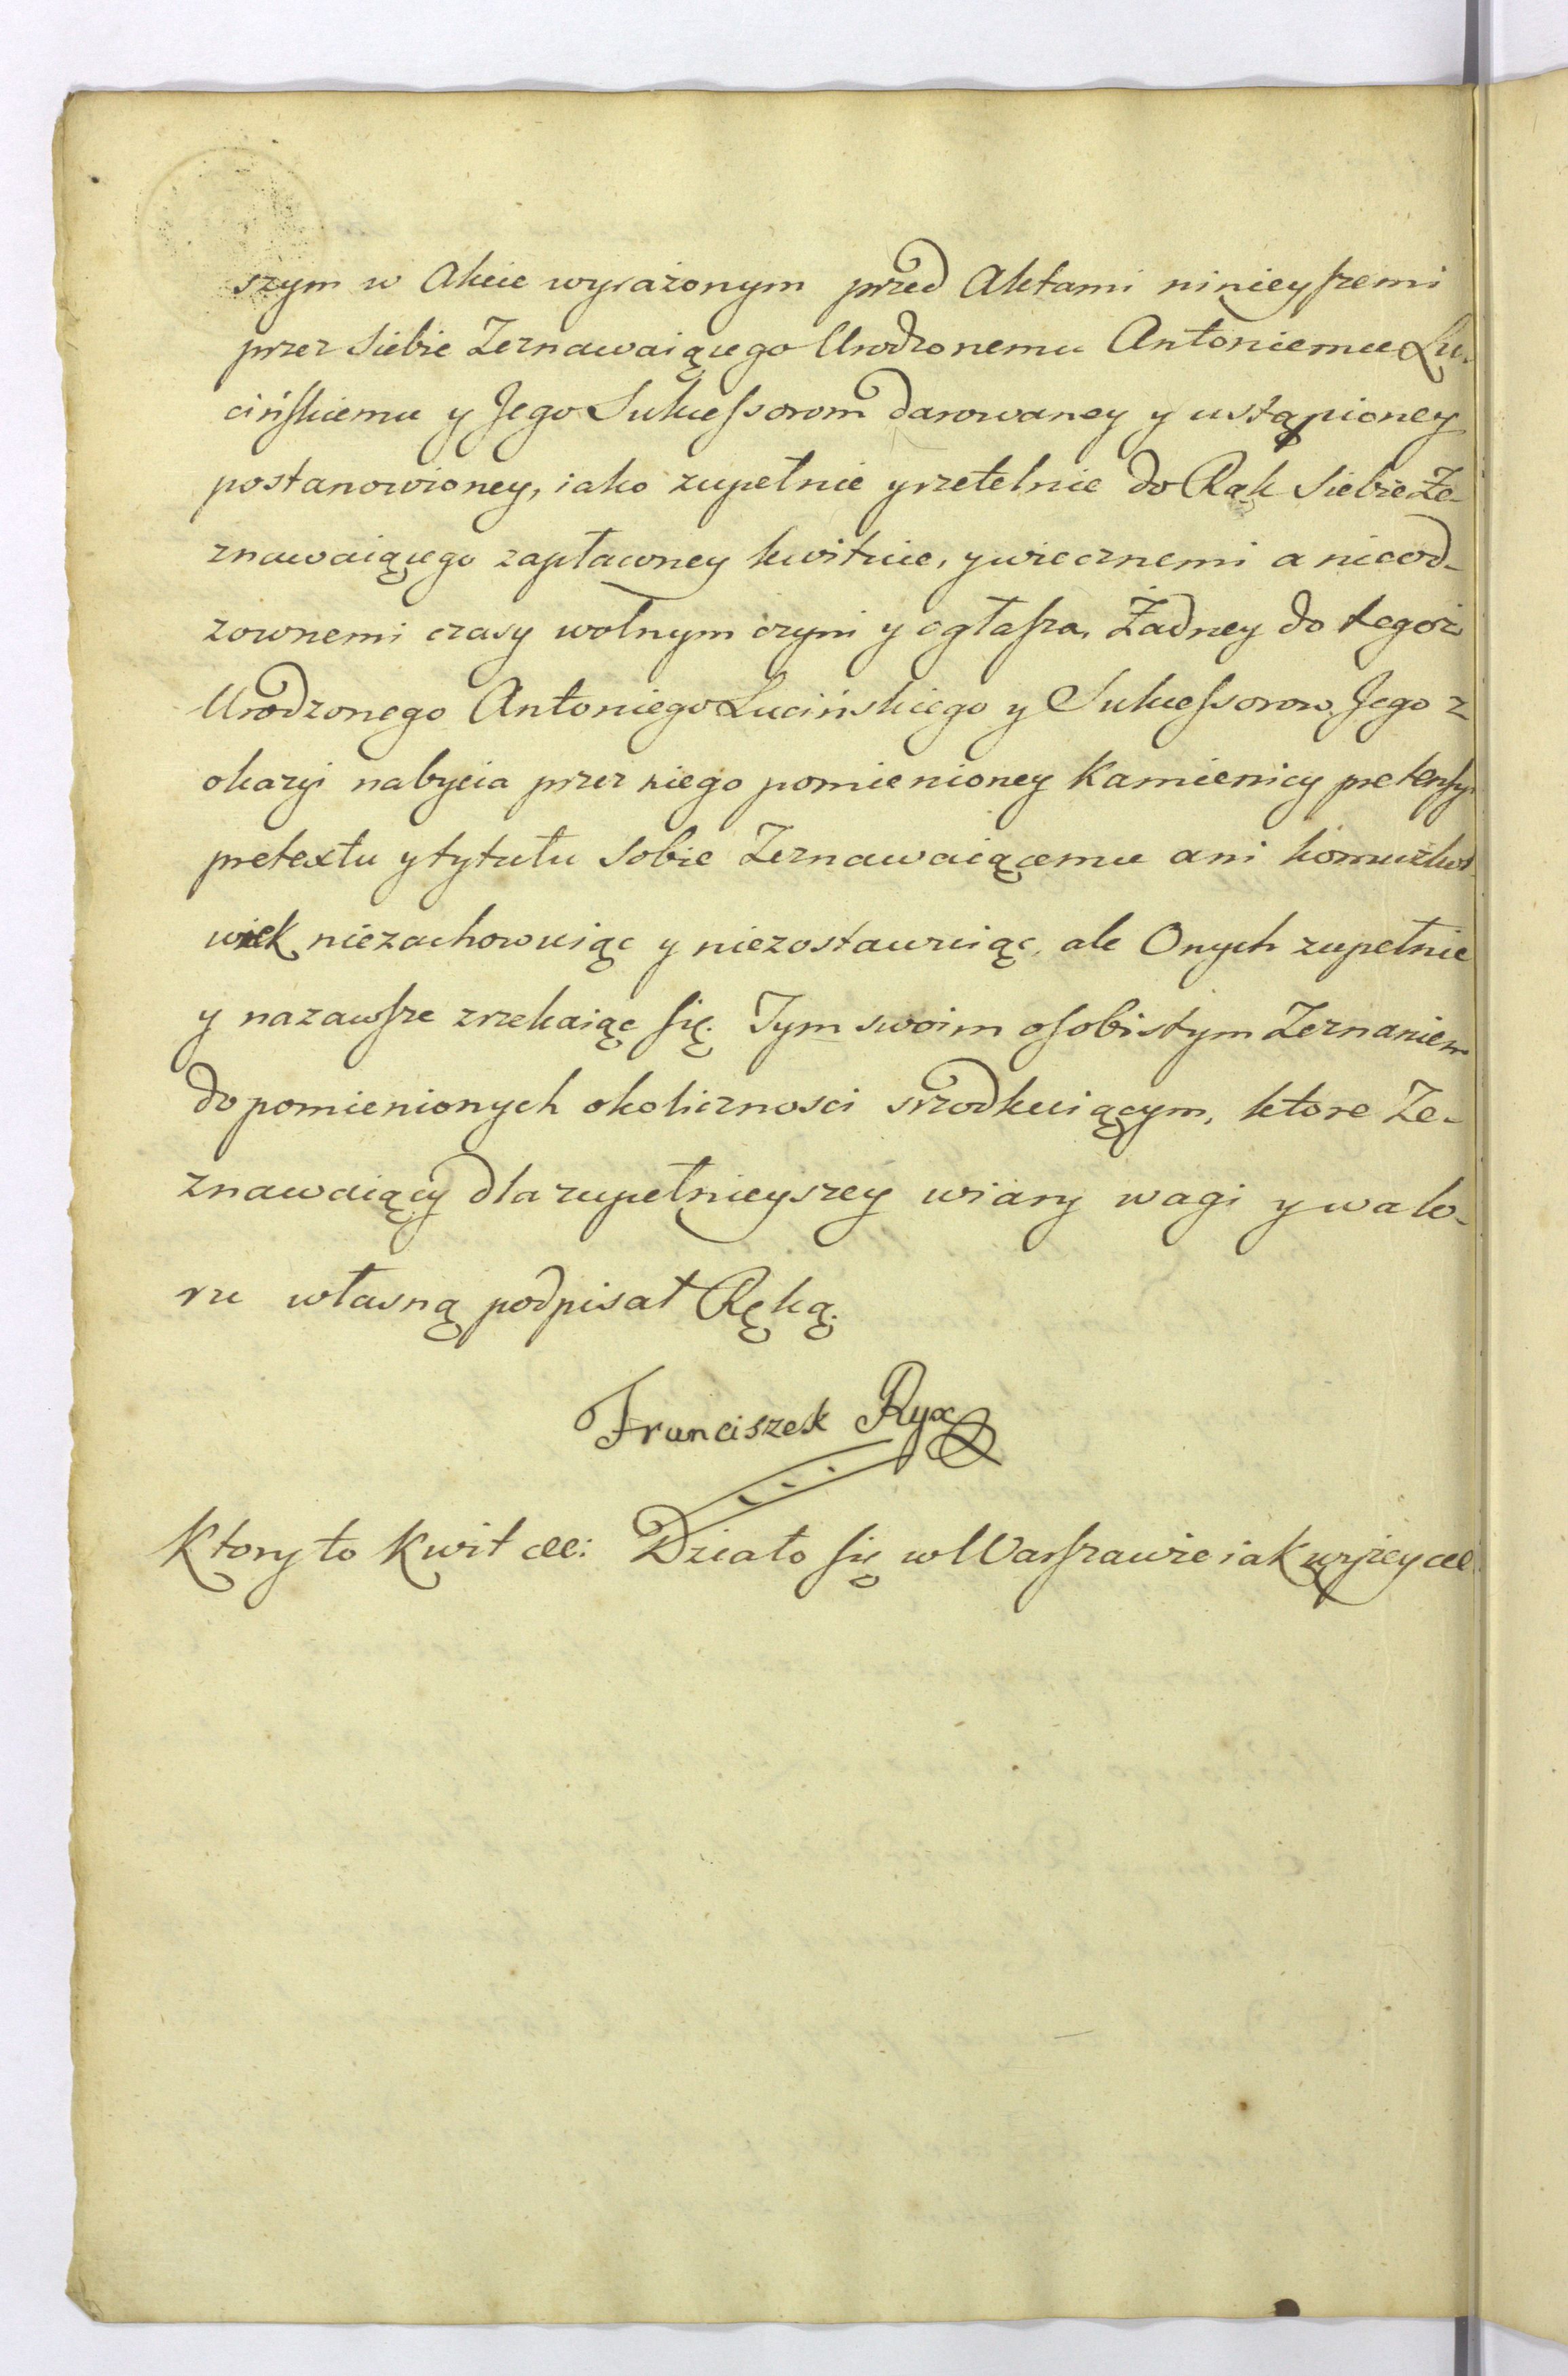 szym w Akcie wyrażonym przed Aktami ninieyszemi
przez Siebie Zeznawaiącego Urodzonemu Antoniemu Lu-
cińskiemu y Jego Sukcessorom darowaney y ustąpioney
postanowioney, iako zupełnie y rzetelnie do Rąk Siebie Ze-
znawaiącego zapłaconey kwituie, y wiecznemi a nieod-
zownemi czasy wolnym czyni y ogłasza, Żadney do tegoż
Urodzonego Antoniego Lucińskiego y Sukcessorow Jego z
okazyi nabycia przez niego pomienioney Kamienicy pretensyi
pretextu y tytułu sobie Zeznawaiącemu ani komużkol-
wiek niezachowuiąc y niezostawuiąc, ale Onych zupełnie
y nazawsze zrzekaiąc się. Tym swoim osobistym Zeznaniem
do pomienionych okoliczności srzodkuiącym, ktore Ze-
znawaiący dla zupełnieyszey wiary wagi y walo-
ru własną podpisał Ręką.
Franciszek Ryx
Ktory to Kwit etc: Działo się w Warszawie iak wyżey etc